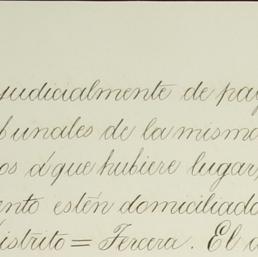 judicialmente de pa
bunales de la mismo
os á que hubiere lugar,
ento estén domiciliado
istrito = Tercera. El